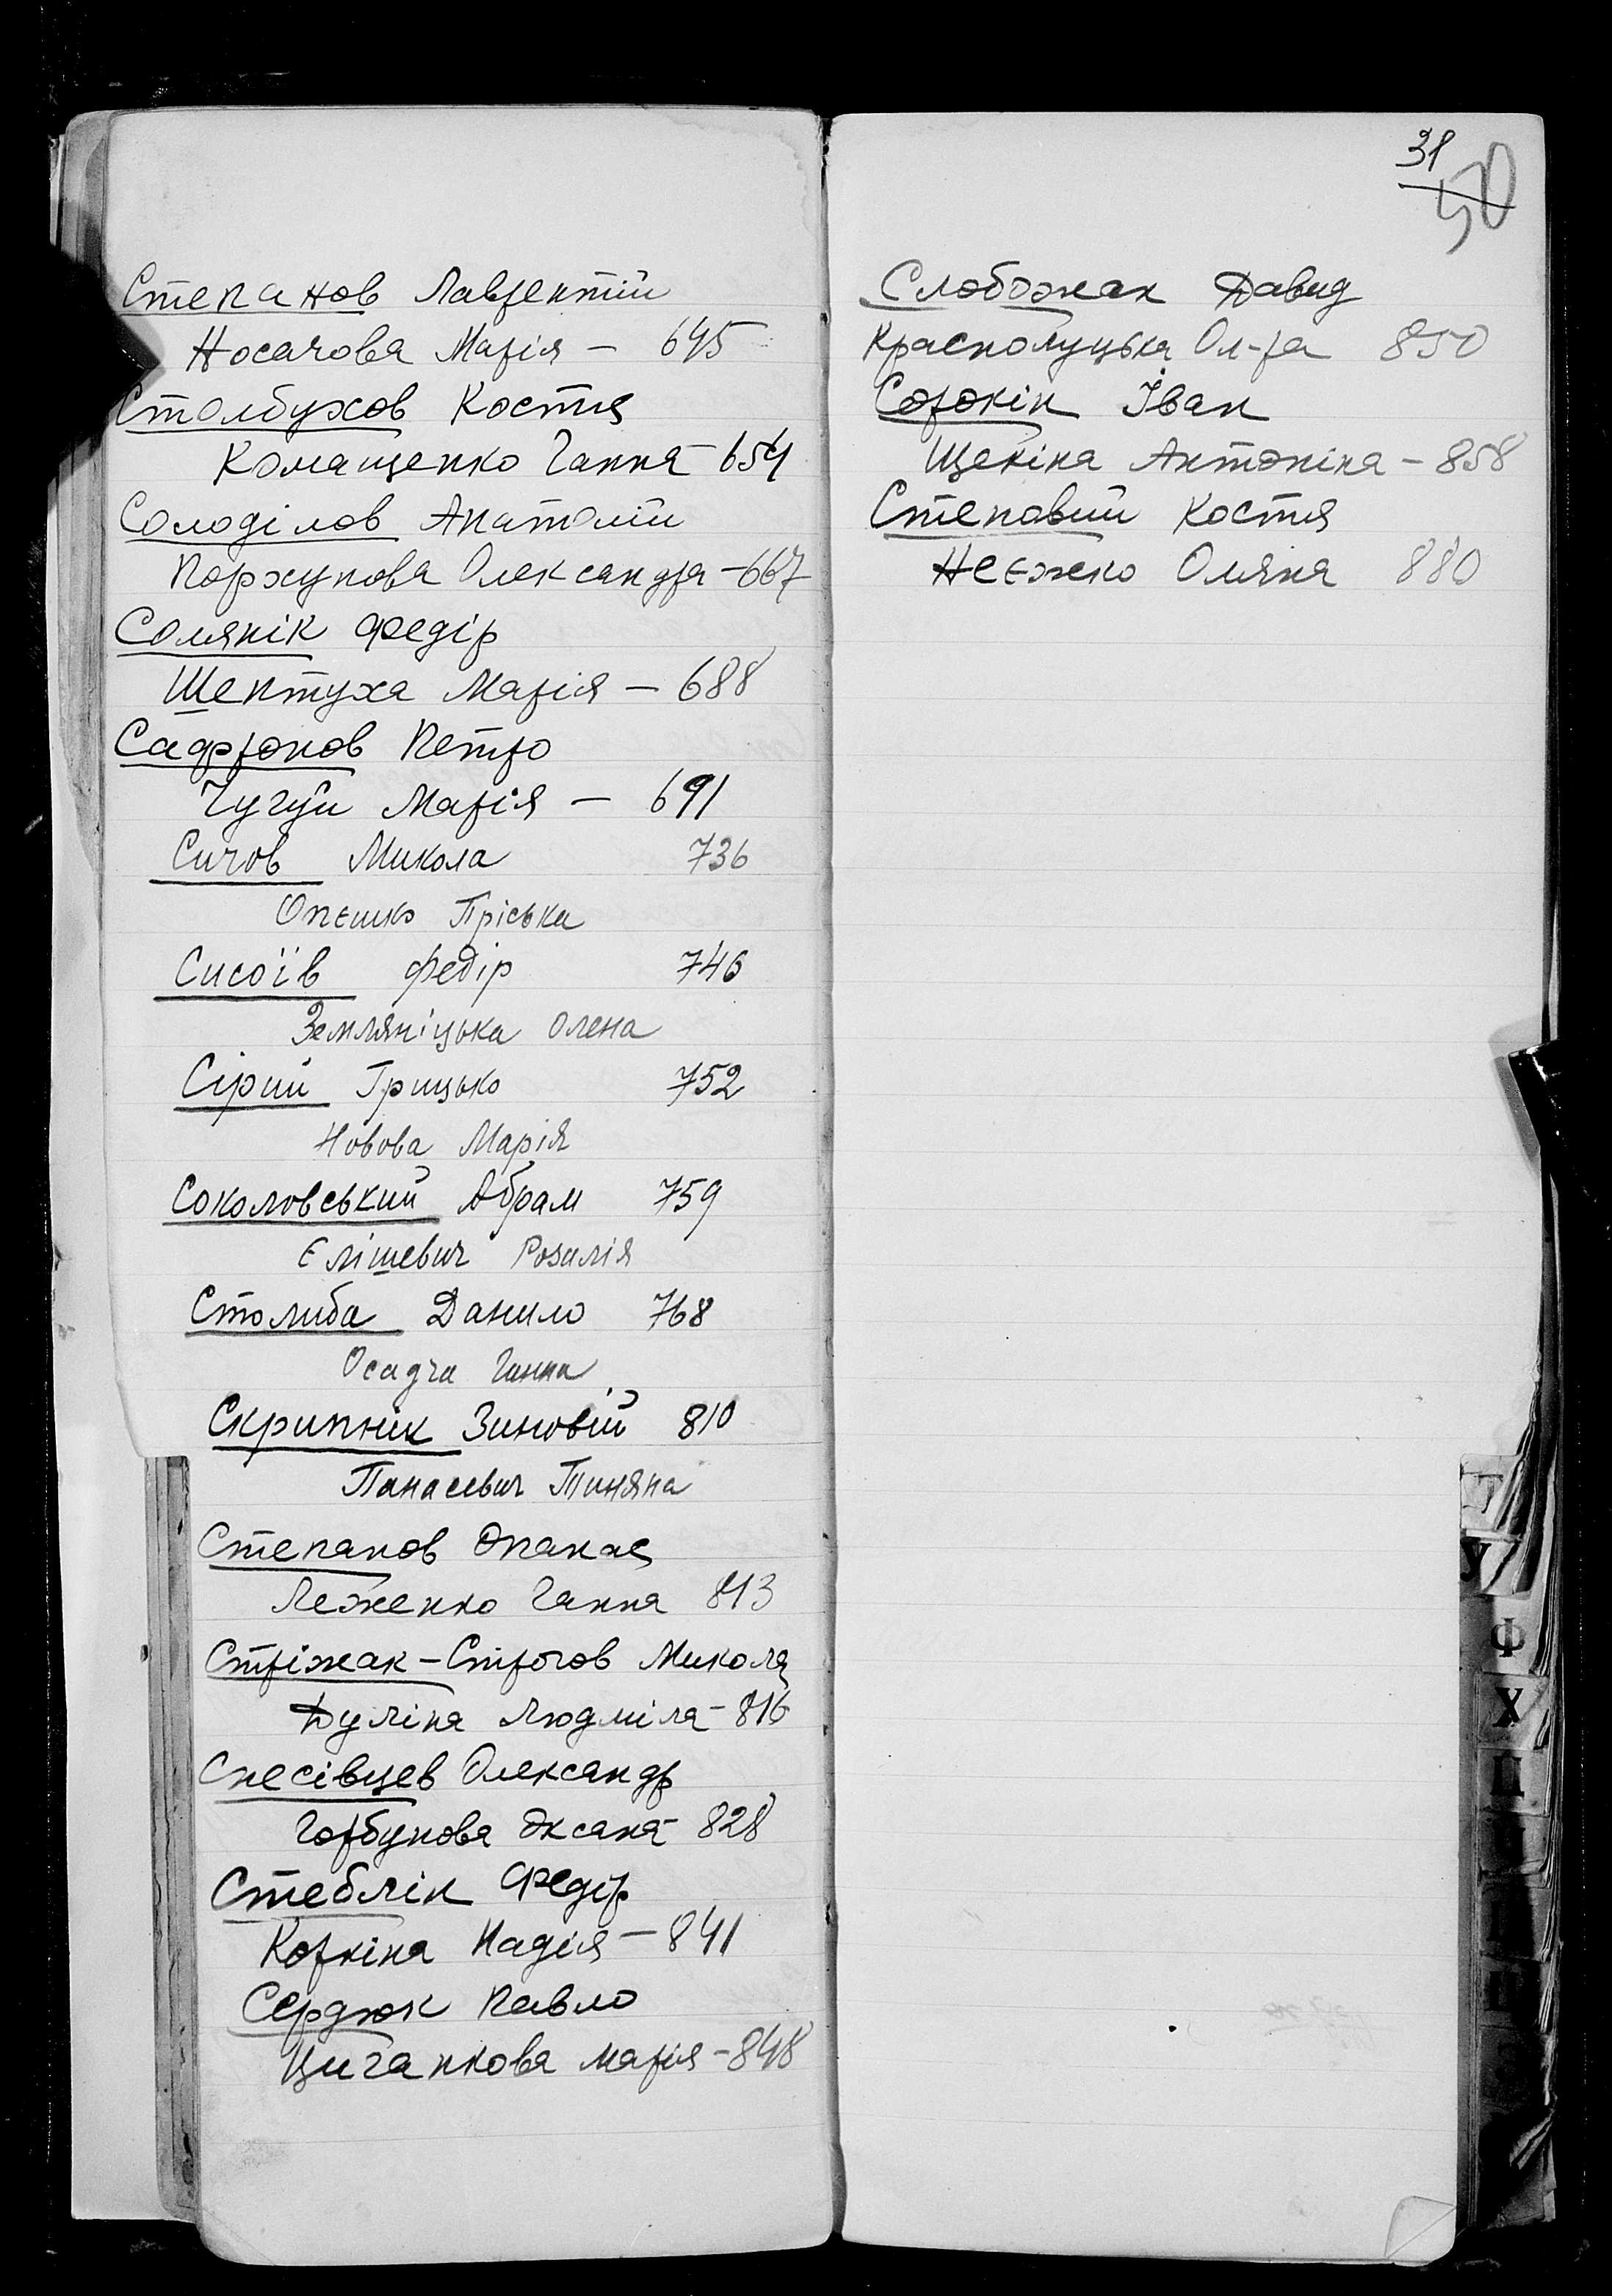 Степанов Лаврентій
Носачова Марія – 645
Столбухов Костя
Комащенко Ганна – 654
Солоділов Анатолій
Поржунова Олександра – 667
Солянік Федір
Шептуха Марія – 688
Сафронов Петро
Чугуй Марія – 691
Сичов Микола 736
Опєшко Пріська
Сисоїв Федір 746
Земляніцька Олена
Сірий Грицько 752
Новова Марія
Соколовський Абрам 759
Єлішевич Розалія
Столиба Данило 768
Осадча Ганна
Скрипнік Зиновій 810
Панасевич Тиняна
Степанов Опанас
Леженко Ганна 813
Стріжак–Строгов Микола
Дуліна Людміла – 816
Спесівцев Олександр
Горбунова Оксана – 828
Стеблін Федір
Коркіна Надія – 841
Сердюк Павло
Циганкова Марія – 848
31
50
Слобожан Давид
Краснолуцька Ол-ра 850
Сорокін Іван
Щекіна Антоніна – 858
Степовий Костя
Неєжко Оляна 880
У
Ф
Х
Ц